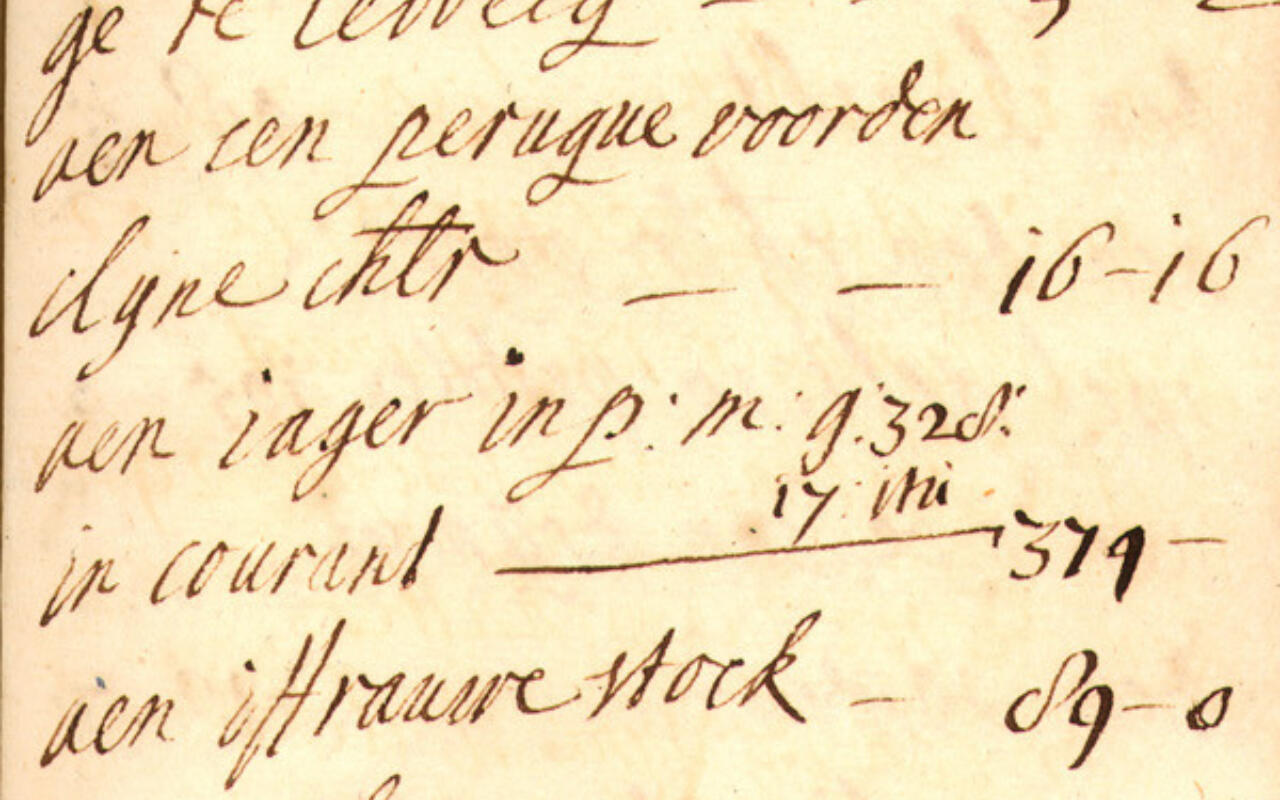 ge te
aen een perugue voorden
clyne chlr — — 16-16
aen iager in p: m: g: 328:
17
in courant — 379 —
aen iffrauwe stock — 89-0